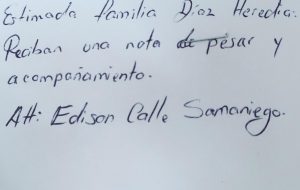 Estimada familia Díaz Heredia:
Reciban una nota de pésar y
acompañamiento.
Att: Edison Calle Samaniego.